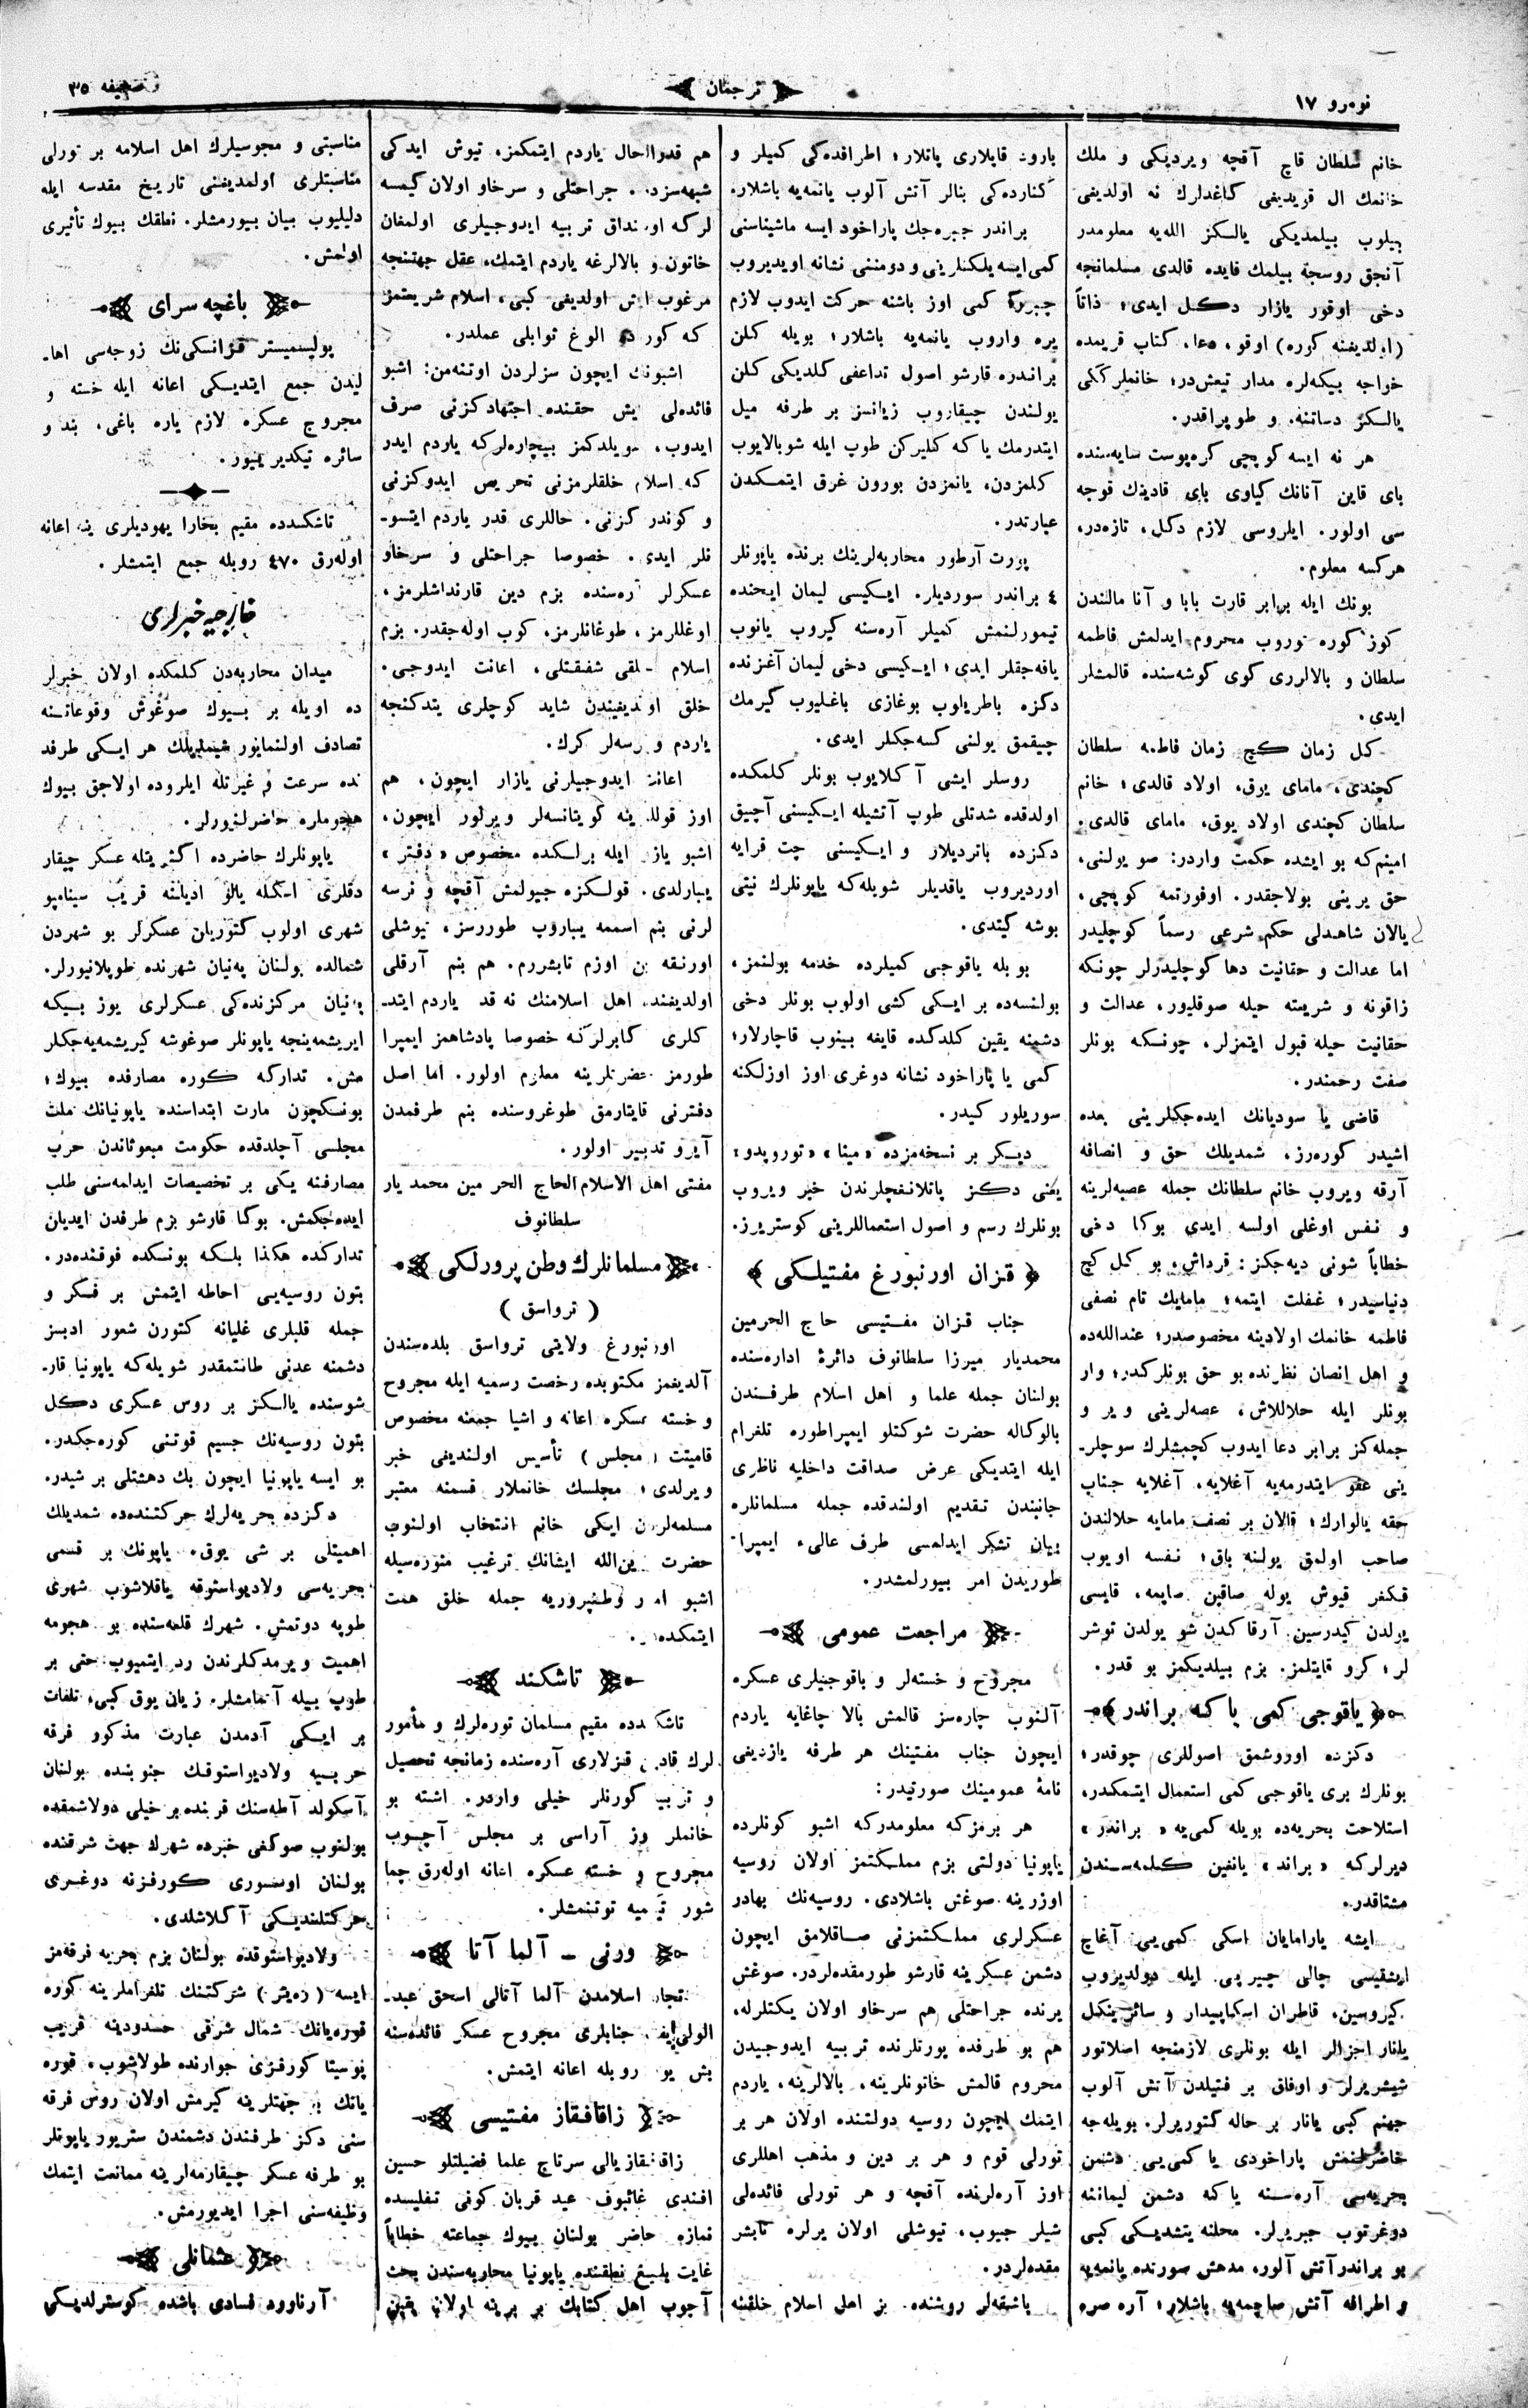 نومرو ١٧
ترجمان
صحیفه ٣٥
خانم سلطان قاچ آقچه ویردیكی و ملك
خانمك ال قویدیغی كاغدلرك نه اولدیغی
بیلوب بیلمدیكی یالكز اللهیه معلومدر
آنجق روسجه بیلمك فایده قالدی مسلمانجه
دخی اوقور یازار دكل ایدی؛ ذاتاً
(اولدیغنه كوره) اوقو، دعا، كتاب قریمده
خواجه بیكه‌لره مدار تعیش‌در؛ خانملرككی
یالكز دساتنه، و طوپراقدر.
هر نه ایسه كوپچی كره‌پوست سایه‌سنده
بای قاین آنانك كیاوی بای قادینك قوجه
سی اولور. ایلروسی لازم دكل، تازه‌در،
هركسه معلوم.
بونك ایله برابر قارت بابا و آنا مالندن
كوز كوره توروب محروم ایدلمش فاطمه
سلطان و بالالری كوی كوشه‌سنده قالمشلر
ایدی.
كل زمان كچ زمان فاطمه سلطان
كچندی، مامای یوق، اولاد قالدی؛ خانم
سلطان كچندی اولاد یوق، مامای قالدی.
امینم‌كه بو ایشده حكمت واردر: صو یولنی،
حق یرینی بولاجقدر. اوفورتمه كوپچی،
یالان شاهدلی حكم شرعی رسماً كوچلیدر
اما عدالت و حقانیت دها كوچلیدرلر چونكه
زاقونه و شریعته حیله صوقلیور، عدالت و
حقانیت حیله قبول ایتمزلر، چونكه بونلر
صفت رحمندر.
قاضی یا سودیانك ایده‌جكلرینی بعده
اشیدر كوره‌رز، شمدیلك حق و انصافه
آرقه ویروب خانم سلطانك جمله عصبه‌لرینه
و نفس اوغلی اولسه ایدی بوكا دخی
خطاباً شونی دیه‌جكز: قرداش، بو كل كچ
دنیاسیدر؛ غفلت ایتمه؛ مامایك تام نصفی
فاطمه خانمك اولادینه مخصوصدر؛ عندالله‌ده
و اهل انصاف نظرنده بو حق بونلركدر؛ وار
بونلر ایله حلاللاش، عصه‌لرینی ویر و
جمله‌كز برابر دعا ایدوب كچمشلرك سوچلر-
ینی عفو ایتدرمه‌یه آغلایه، آغلایه جناب
حقه یالوارك؛ قالان بر نصف مامایه حلالندن
صاحب اولمق یولنه باق؛ نفسه اویوب
قنكغر قیوش یوله صاقین صاپمه، قایسی
یولدن كیدرسین آرقاكدن شو یولدن توشر
لر؛ كرو قایتلمز. بزم بیلدیكمز بو قدر.
یاقوجی كمی یا كه براندر
دكزده اوروشمق اصوللری چوقدر؛
بونلرك بری یاقوجی كمی استعمال ایتمكدر،
استلاحت بحریه‌ده بویله كمی‌یه «براندر»
دیرلركه «براند» یانغین كلمه‌سندن
مشتاقدر.
ایشه یارامایان اسكی كمی‌یی آغاچ
اوشقیسی چالی چیرپی ایله دولدیروب
كیروسین، قاطران اسكاپیدار و سائر ینكل
یلنار اجزالر ایله بونلری لازمنجه اصلاتور
شیشریرلر و اوفاق بر فتیلدن آتش آلوب
جهنم كبی یانار بر حاله كتوریرلر. بویله‌جه
حاضرلنمش پاراخودی یا كمی‌یی دشمن
بحریه‌سی آره‌سنه یا كه دشمن لیماننه
دوغرتوب جبریرلر. محلنه یتشدیكی كبی
بو براندر آتش آلور، مدهش صورنده یانمه‌یه
و اطرافه آتش صاچمه‌یه باشلار؛ آره صره
بارود قاپلاری پاتلار؛ اطرافده‌كی كمیلر و
كنارده‌كی بنالر آتش آلوب یانمه‌یه باشلار.
براندر جبره‌جك پاراخود ایسه ماشیناسنی
كمی ایسه یلكنلرینی و دومننی نشانه اویدیروب
چبررلر كمی اوز باشنه حركت ایدوب لازم
یره واروب یانمه‌یه باشلار؛ بویله كلن
براندره قارشو اصول تداعفی كلدیكی كلن
یولندن چیقاروب زیانسز بر طرفه میل
ایتدرمك یا كه كلیركن طوپ ایله شوبالایوب
كلمزدن، یانمزدن بورون غرق ایتمكدن
عبارتدر.
پورت آرطور محاربه‌لرینك برنده یاپونلر
٤ براندر سوردیلر. ایكیسی لیمان ایچنده
تیمورلنمش كمیلر آره‌سنه كیروب یانوب
یاقه‌جقلر ایدی؛ ایكیسی دخی لیمان آغزنده
دكزه باطریلوب بوغازی باغلیوب كیرمك
چیقمق یولنی كسه‌جكلر ایدی.
روسلر ایشی آكلایوب بونلر كلمكده
اولدقده شدتلی طوپ آتشیله ایكیسنی آچیق
دكزده باتردیلار و ایكیسنی چت قرایه
اوردیروب یاقدیلر شویله‌كه یاپونلرك نیتی
بوشه كیتدی.
بویله یاقوجی كمیلرده خدمه بولنمز،
بولنسه‌ده بر ایكی كشی اولوب بونلر دخی
دشمنه یقین كلدكده قایقه بینوب قاچارلار؛
كمی یا پاراخود نشانه دوغری اوز اوزلكنه
سوریلور كیدر.
دیكر بر نسخه‌مزده «مینا» «تورپدو»
یعنی دكز پاتلانغچلرندن خبر ویروب
بونلرك رسم و اصول استعماللرینی كوستریرز.
قزان اورنبورغ مفتیلكی
جناب قزان مفتیسی حاج الحرمین
محمدیار میرزا سلطانوف دائرهٔ اداره‌سنده
بولنان جمله علما و اهل اسلام طرفندن
بالوكاله حضرت شوكتلو ایمپراطوره تلغرام
ایله ایتدیكی عرض صداقت داخلیه ناظری
جانبندن تقدیم اولندقده جمله مسلمانلره
بیان تشكر ایدلمسی طرف عالیء ایمپرا-
طوریدن امر بیورلمشدر.
مراجعت عمومی
مجروح و خسته‌لر و یاقوجیلری عسكره
آلنوب چاره‌سز قالمش بالا چاغایه یاردم
ایچون جناب مفتینك هر طرفه یازدیغی
نامهٔ عمومینك صورتیدر:
هر برمزكه معلومدركه اشبو كونلرده
یاپونیا دولتی بزم مملكتمز اولان روسیه
اوزرینه صوغش باشلادی. روسیه‌نك بهادر
عسكرلری مملكتمزنی صاقلامق ایچون
دشمن عسكرینه قارشو طورمقده‌لردر. صوغش
یرنده جراحتلی هم سرخاو اولان یكتلرله،
هم بو طرفده یورتلرنده تربیه ایدوجیدن
محروم قالمش خاتونلرینه، بالالرینه، یاردم
ایتمك ایچون روسیه دولتنده اولان هر بر
تورلی قوم و هر بر دین و مذهب اهللری
اوز آره‌لرنده آقچه و هر تورلی فائده‌لی
شیلر جیوب، تیوشلی اولان یرلره تابشر
مقده‌لردر.
باشقه‌لر روشنده. بز اهل اسلام خلقنه
هم قدرالحال یاردم ایتمكمز، تیوش ایدكی
شبهه‌سزدر. جراحتلی و سرخاو اولان كیمسه
لركه اوشنداق تربیه ایدوجیلری اولمغان
خاتون و بالالرغه یاردم ایتمك، عقل جهتنجه
مرغوب ایش اولدیغی كبی، اسلام شریعتمز
كه كوره الوغ ثوابلی عملدر.
اشبونك ایچون سزلردن اوتنه‌من: اشبو
فائده‌لی ایش حقنده اجتهادكزنی صرف
ایدوب، سویلدكمز بیچاره‌لركه یاردم ایدر
كه اسلام خلقلرمزنی تحریص ایدوكزنی
و كوندركزنی. حاللری قدر یاردم ایتسو-
نلر ایدی. خصوصا جراحتلی و سرخاو
عسكرلر آره‌سنده بزم دین قارنداشلرمز،
اوغللرمز، طوغانلرمز، كوب اوله‌جقدر. بزم
اسلام خلقی شفقتلی، اعانت ایدوجی.
خلق اولدیغیندن شاید كوچلری یتدكنجه
یاردم ویرسه‌لر كرك.
اعانت ایدوجیلرنی یازار ایچون، هم
اوز قوللرینه كویتانسه‌لر ویرلور ایچون،
اشبو یازو ایله برلكده مخصوص «دفتر»
یبارلدی. قولكزه جیولمش آقچه و نرسه
لرنی بنم اسممه یباروب طوررسز، تیوشلی
اورنقه بن اوزم تابشررم. هم بنم آرقلی
اولدیغندن اهل اسلامنك نه قدر یاردم ایتد-
كلری كابرلركه خصوصا پادشاهمز ایمپرا
طورمز حضرتلرینه معلوم اولور. اما اصل
دفترنی قایتارمق طوغروسنده بنم طرفمدن
آیرو تدبیر اولور.
مفتی اهل الاسلام الحاج الحرمین محمد یار
سلطانوف
مسلمانلرك وطن پرورلكی
( ترواسق )
اورنبورغ ولایتی ترواسق بلده‌سندن
آلدیغمز مكتوبده رخصت رسمیه ایله مجروح
و خسته عسكره اعانه و اشیا جمعنه مخصوص
قامیتت (مجلس) تأسیس اولندیغی خبر
ویرلدی؛ مجلسك خانملار قسمنه معتبر
مسلمه‌لردن ایكی خانم انتخاب اولنوب
حضرت زین‌الله ایشانك ترغیب منوره‌سیله
اشبو امر وطنپروریه جمله خلق همت
ایتمكده‌در.
تاشكند
تاشكندده مقیم مسلمان توره‌لرك و مأمور
لرك قادین قزلاری آره‌سنده زمانجه تحصیل
و تربیه كورنلر خیلی واردر. اشته بو
خانملر اوز آراسی بر مجلس آچوب
مجروح و خسته عسكره اعانه اوله‌رق چما
شور تیمیه توتنمشلر.
ورنی - آلما آتا
تجار اسلامدن آلما آتالی اسحق عبد-
الولی‌ایف جنابلری مجروح عسكر فائده‌سنه
بش یوز روبله اعانه ایتمش.
زاقافقاز مفتیسی
زاقافقازیالی سرتاج علما فضیلتلو حسین
افندی غائبوف عید قربان كونی تفلیسده
نمازه حاضر بولنان بیوك جماعته خطاباً
غایت بلیغ نطقنده یاپونیا محاربه‌سندن بحث
آچوب اهل كتابك بر برینه اولان یقین
مناسبتی و مجوسیلرك اهل اسلامه بر تورلی
مناسبتلری اولمدیغنی تاریخ مقدسه ایله
دلیلیوب بیان بیورمشلر. نطقك بیوك تأثیری
اولمش.
باغچه سرای
پولیسمیستر قزانسكی‌نك زوجه‌سی اها-
لیدن جمع ایتدیكی اعانه ایله خسته و
مجروح عسكره لازم یاره باغی، بند و
سائره تیكدیریمیور.
تاشكندده مقیم بخارا یهودیلری ینه اعانه
اوله‌رق ٤٧٠ روبله جمع ایتمشلر.
خارجیه خبرلری
میدان محاربه‌دن كلمكده اولان خبرلر
ده اویله بر بیوك صوغوش وقوعاتنه
تصادف اولنمایور شیمدیلك هر ایكی طرفد
نده سرعت و غیرتله ایلروده اولاجق بیوك
هجوملره حاضرلنیورلر.
یاپونلرك حاضرده اكثریتله عسكر چیقار
دقلری اسكله یالو ادیاننه قریب سینامپو
شهری اولوب كتوریلن عسكرلر بو شهردن
شمالده بولنان پنیان شهرنده طوپلانیورلر.
پنیان مركزنده‌كی عسكرلری یوز بیكه
ایریشمه‌ینجه یاپونلر صوغوشه كیریشمه‌یه‌جكلر
مش. تداركه كوره مصارفده بیوك؛
بونكچون مارت ابتداسنده یاپونیانك ملت
مجلسی آچلدقده حكومت مبعوثاندن حرب
مصارفنه یكی بر تخصیصات ایدلمه‌سنی طلب
ایده‌جكمش. بوكا قارشو بزم طرفدن ایدیلن
تداركده هكذا بلكه بونكده فوقنده‌در.
بتون روسیه‌یی احاطه ایتمش بر فكر و
جمله قلبلری غلیانه كتورن شعور ادبسز
دشمنه عدنی طانتمقدر شویله‌كه یاپونیا قار-
شوسنده یالكز بر روس عسكری دكل
بتون روسیه‌نك جسیم قوتنی كوره‌جكدر.
بو ایسه یاپونیا ایچون بك دهشتلی بر شیدر.
دكزده بحریه‌لرك حركتنده‌ده شمدیلك
اهمیتلی بر شی یوق، یاپونك بر قسمی
بحریه‌سی ولادیواستوقه یاقلاشوب شهری
طوپه دوتمش. شهرك قلعه‌سنده بو هجومه
اهمیت ویرمدكلرندن رد ایتمیوب حتی بر
طوپ بیله آتمامشلر. زیان یوق كبی، تلفات
بر ایكی آدمدن عبارت مذكور فرقه
حربیه ولادیواستوقك جنوبنده بولنان
آسكولد آطه‌سنك قربنده بر خیلی دولاشمقده
بولنوب صوكفی خبرده شهرك جهت شرقنده
بولنان اوسوری كورفزنه دوغری
حركتلندیكی آكلاشلدی.
ولادیواستوقده بولنان بزم بحریه فرقه‌مز
ایسه (زه‌یتر) شركتنك تلغراملرینه كوره
قوره‌یانك شمال شرقی حسدودینه قریب
پوسیتا كورفزی جوارنده طولاشوب، قوره
یانك بو جهتلرینه كیرمش اولان روس فرقه
سنی دكز طرفندن دشمندن ستریور یاپونلر
بو طرفه عسكر چیقارمه‌لرینه ممانعت ایتمك
وظیفه‌سنی اجرا ایدیورمش.
عثمانلی
آرناوود فسادی باشده كوسترلدیكی